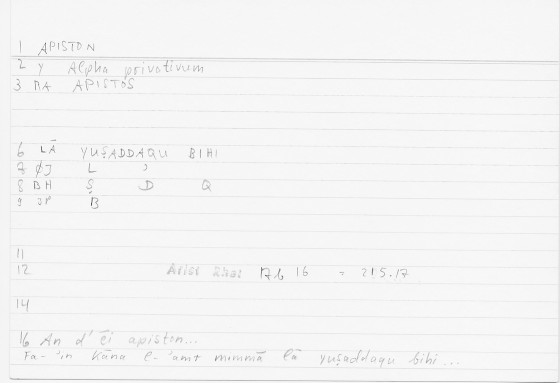 1 APISTON
2 y Alpha privativum
3 ΠA APISTOS
6 LĀ YUṢADDAQU BIHI
7 ØJ L ʾ
8 BH Ṣ D Q
9 JP B
11
12 Arist Rhet 17b 16 = 215.17
14
16 An d' ēi apiston...
Fa-ʾin kāna l-ʾamr mimmā lā yuṣaddaqu bihi...